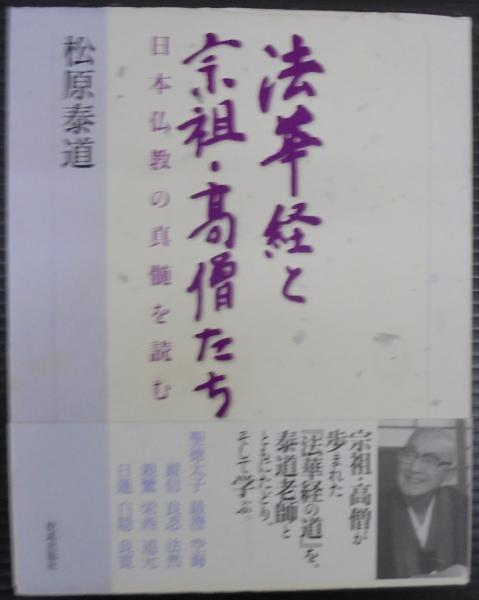 法華経と
宗祖・高僧たち
日本仏教の真髄を読む
松原泰道
宗祖・高僧が
歩まれた
『法華経の道』を、
泰道老師と
ともにたどり、
そして学ぶ。
聖徳太子 最澄 空海
源信 良忍 法然
親鸞 栄西 道元
日蓮 白隠 良寛
佼成出版社